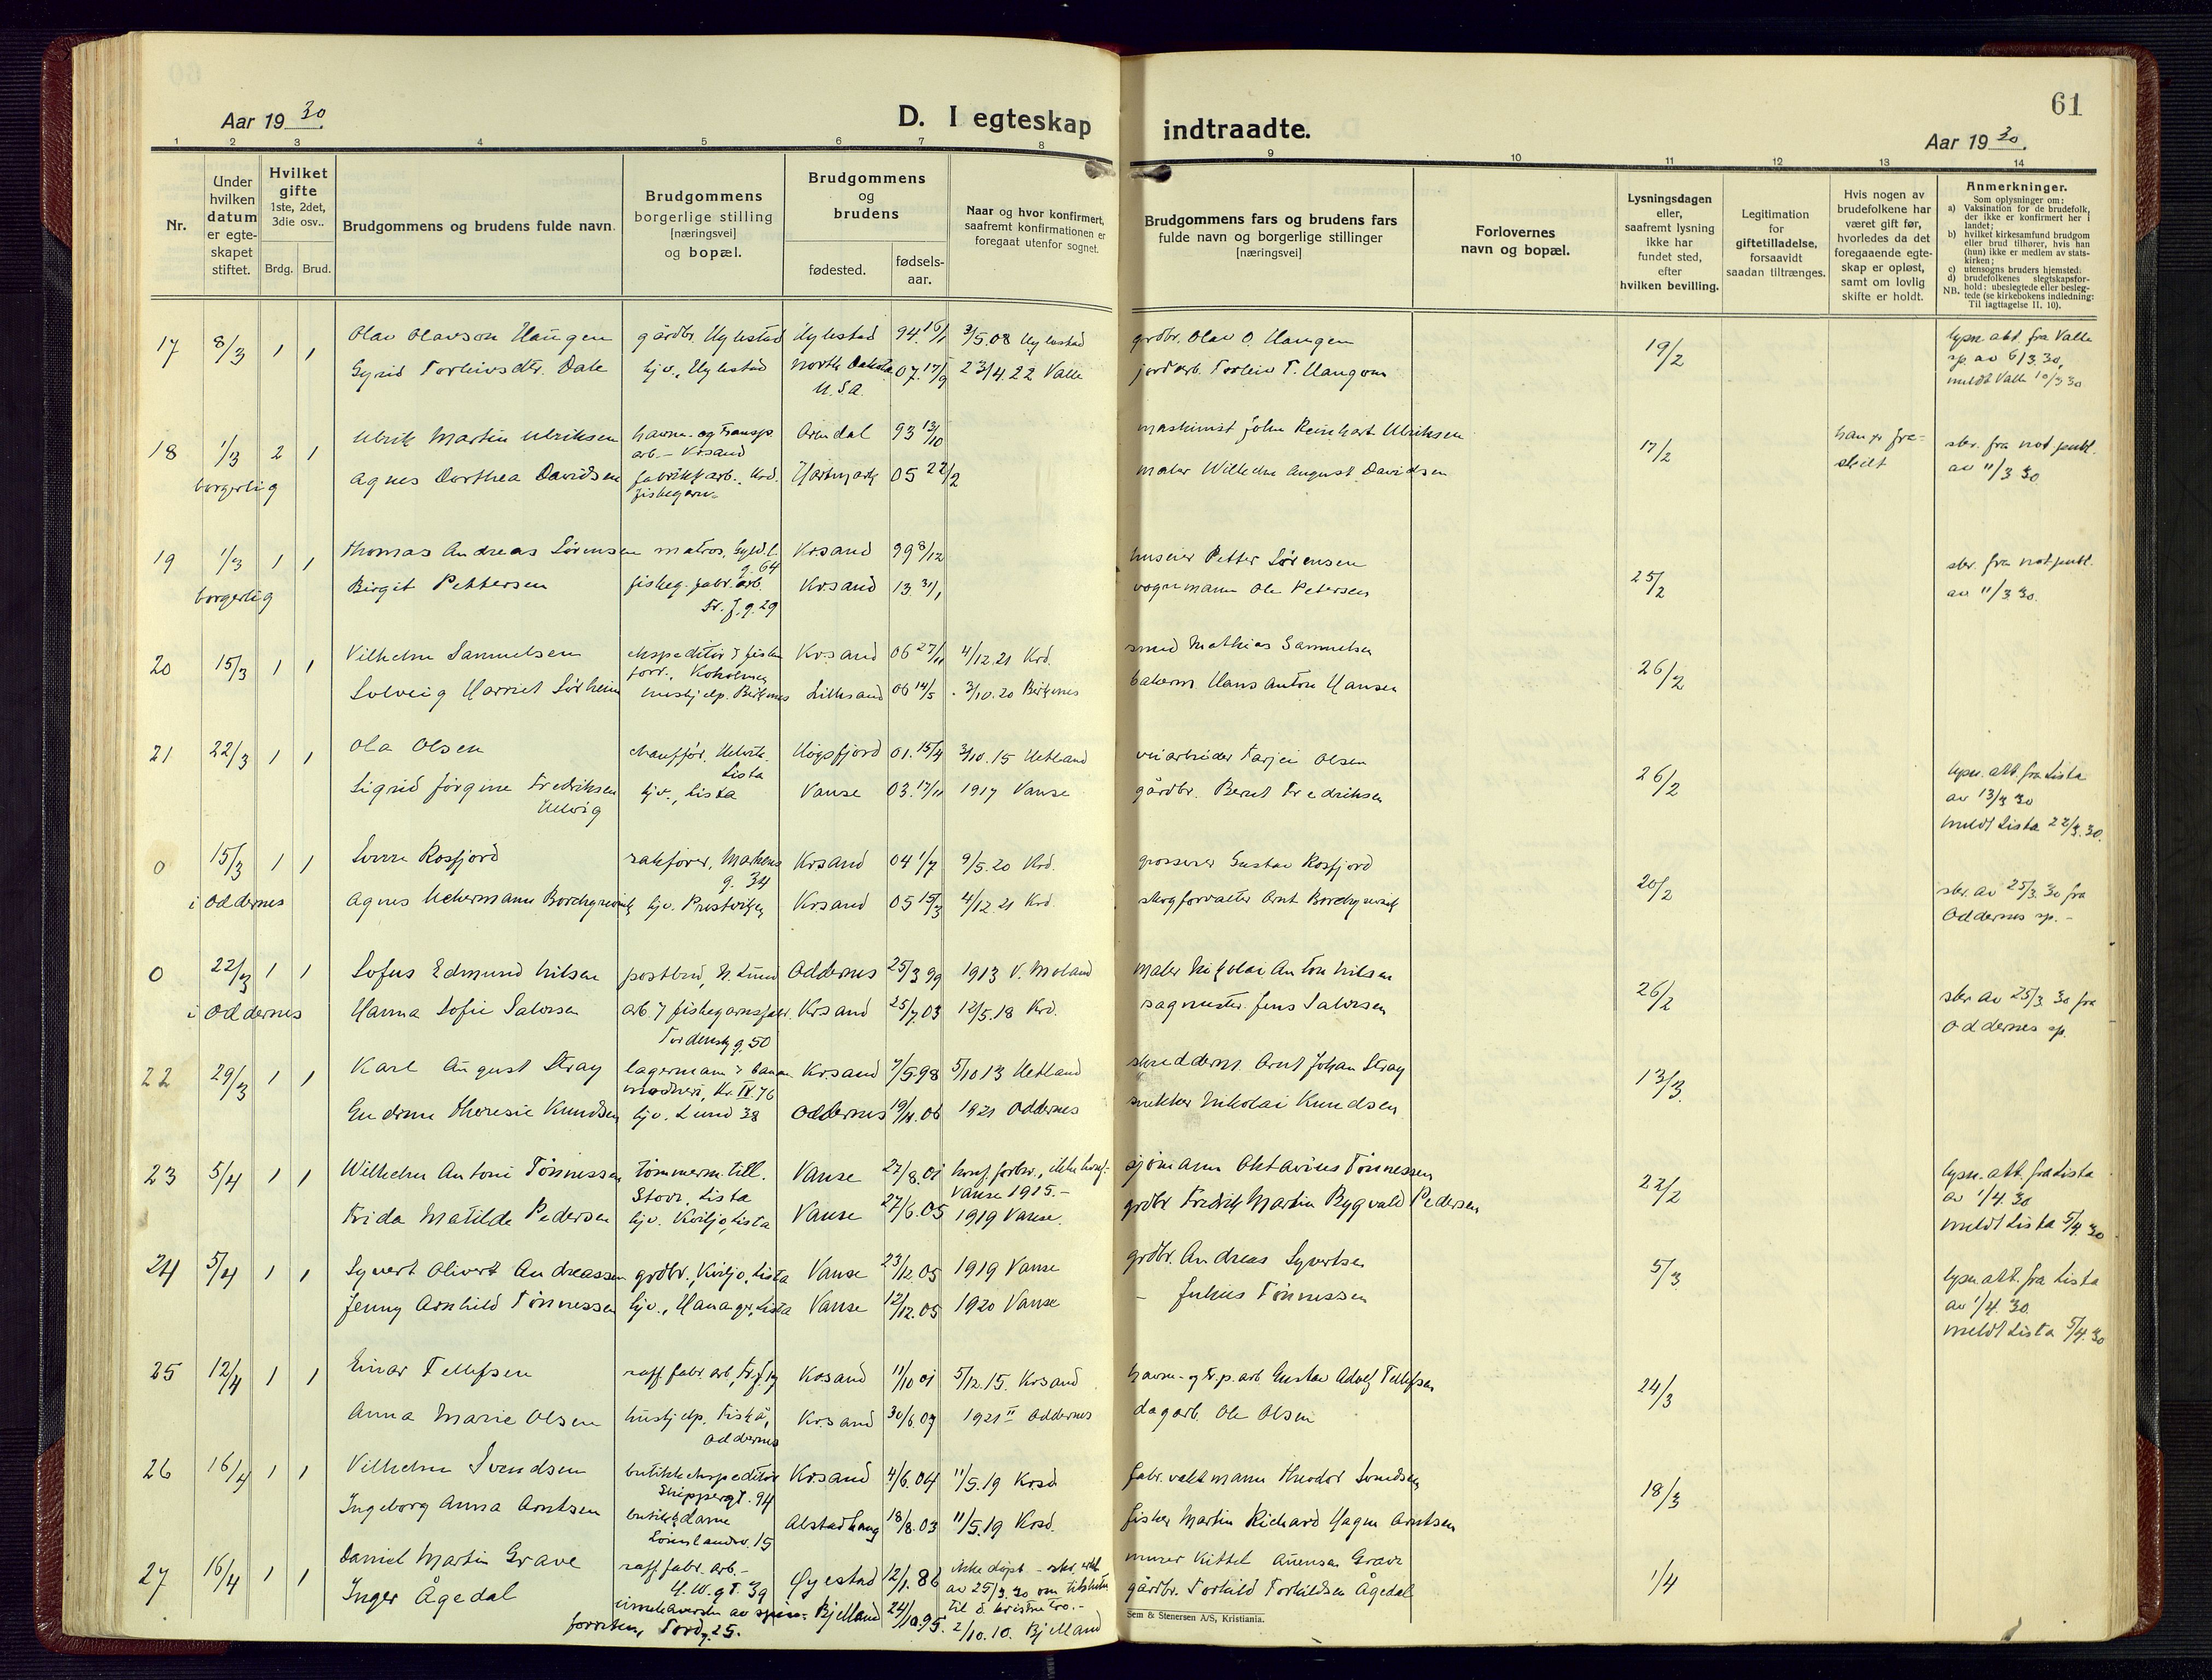 61
Aar 1930.
D. I egteskap indtraadte.
Aar 1930.
1 2 3 4 5 6 7 8 9 10 11 12 13 14
Nr.
Under hvilken datum er egte-skapet stiftet.
Hvilket gifte 1ste, 2det, 3die osv..
Brdg. Brud.
Brudgommens og brudens fulde navn.
Brudgommens borgerlige stilling [næringsvei] og bopæl.
Brudgommens og brudens
fødested.
fødsels-aar.
Naar og hvor konfirmert, saafremt konfirmationen er foregaat utenfor sognet.
Brudgommens fars og brudens fars fulde navn og borgerlige stillinger [næringsvei]
Forlovernes navn og bopæl.
Lysningsdagen eller, saafremt lysning ikke har fundet sted, efter hvilken bevilling.
Legitimation for giftetilladelse, forsaavidt saadan tiltrænges.
Hvis nogen av brudefolkene har været gift før, hvorledes da det foregaaende egte-skap er opløst, samt om lovlig skifte er holdt.
Anmerkninger.
Som oplysninger om:
a) Vaksination for de brudefolk, der ikke er konfirmert her i landet;
b) hvilket kirkesamfund brudgom eller brud tilhører, hvis han (hun) ikke er medlem av stats-kirken;
c) utensogns bruders hjemsted;
d) brudefolkenes slegtskapsfor-hold: ubeslegtede eller besleg-tede (se kirkebokens indledning:
NB. Til iagttagelse II. 10).
17 8/3 1 1 Olav Olavson Haugen gårdbr. Hylestad Hylestad 94 16/1 3/5.08 Hylestad grdbr. Olav O. Haugen 19/2 lysn. att. fra Valle
Gyrid Torleivsdtr. Dale hjv., Hylestad North Dakota U.S.A. 07.17/9 23/4.22 Valle jordarb. Torleiv T. Haugom sp. av 6/3 30, meldt Valle 10/3 30
18 1/3 2 1 Ulrik Martin Ulriksen havne- og transp. arb. - Krsand Arendal 93 13/10 maskinist John Reinhart Ulriksen 17/2 han er fra-skilt skr. fra not. publ.
borgerlig Agnes Dorthea Davidsen fabrikkarb. Krd. fiskegarn- Hartmark 05 22/2 maler Wilhelm August Davidsen av 11/3 30
19 1/3 1 1 Thomas Andreas Sørensen matros, Gyld.l. g. 64 Krsand 99 8/12 huseier Petter Sørensen 25/2 skr. fra not. publ.
borgerlig Birgit Pettersen fiskeg. fabr. arb. Fr. f. g. 29 Krsand 13 31/1 vognmann Ole Petersen av 11/3 30.
20 15/3 1 1 Vilhelm Samuelsen ekspeditør i fiskeforr., Koholmen Krsand 06 27/11 4/12.21 Krd. smed Mathias Samuelsen 26/2
Solveig Harriet Sørheim hushjelp. Birkenes Lillesand 06 14/5 3/10.20 Birkenes bakerm. Hans Anton Hansen
21 22/3 1 1 Ola Olsen chauffør, Lista Høgsfjord 01. 15/4 3/10.15 Hetland veiarbeider Tarjei Olsen 26/2 lysn. att. fra Lista
Sigrid Jørgine Fredriksen Ulevig hjv., Lista Vanse 03.17/11 1917 Vanse gårdbr. Bernt Fredriksen av 13/3 30
meldt Lista 22/3.30.
0 15/3 1 1 Sverre Rosfjord sakfører, Markens g. 34 Krsand 04 1/7 9/5.20 Krd. grosserer Gustav Rosfjord 20/2 skr. av 25/3.30 fra
i Oddernes Agnes Uchermann Borchgrevink hjv. Prestviken Krsand 05 15/3 4/12 21 Krd. skogforvalter Arnt Borchgrevink Oddernes sp. -
0 22/3 1 1 Sofus Edmund Nilsen postbud, N. Lund Oddernes 25/3 99 1913 V. Moland maler Nikolai Anton Nilsen 26/2 skr. av 25/3 30 fra
i Oddernes Hanna Sofie Salvesen arb. i fiskegarnsfabr. Tordenskj.g. 50 Krsand 25/7.03 12/5.18 Krd. sagmester Jens Salvesen Oddernes sp.
22 29/3 1 1 Karl August Stray lagermann i banan-modneri, Kr. IV. 76 Krsand 7/5.98 5/10 13 Hetland skredderm. Arnt Johan Stray 13/3
Gudrun Theresie Knudsen hjv. Lund 38 Oddernes 19/11.06 1921 Oddernes snekker Nikolai Knudsen
23 5/4 1 1 Wilhelm Antoni Tønnessen tømmerm. till. Stove, Lista Vanse 27/8.01 konf. forbr., ikke konf. Vanse 1915.- sjømann Oktavius Tønnessen 22/2 lysn. att. fra Lista
Frida Matilde Pedersen hjv. Kviljo, Lista Vanse 27/6.05 1919 Vanse. grdbr. Fredrik Martin Rygvald Pedersen av 1/4 30
meldt Lista 5/4 30
24 5/4 1 1 Syvert Olivert Andreassen grdbr., Kviljo, Lista Vanse 23/12.05 1919 Vanse grdbr. Andreas Syvertsen 5/3 lysn. att. fra Lista
Jenny Arnhild Tønnessen hjv., Hananger, Lista Vanse 12/12.05 1920 Vanse - Julius Tønnessen av 1/4 30.
meldt Lista 5/4 30
25 12/4 1 1 Einar Tellefsen raff. fabr. arb., Krsand 11/10 01 5/12.15. Krsand havne- og tr.p. arb. Gustav Adolf Tellefsen 24/3
Anna Marie Olsen hushjelp. Fiskå, Oddernes Krsand 30/6.07 1921 II Oddernes dagarb. Ole Olsen
26 16/4 1 1 Vilhelm Svendsen butikkekspeditør Skippergt. 94 Krsand 4/6.04 11/5.19 Krsd. fabr. vaktmann Theodor Svendsen 18/3
Ingeborg Anna Arntsen butikkdame 15 Alstadhaug 18/8.03 11/5.19 Krsd. fisker Martin Richard Hagen Arntsen
27 16/4 1 1 Daniel Martin Grave raff. fabr. arb. - H. W. gt. 39 Øyestad 12/1.86 ikke døpt - skr. erkl. av 25/3.30 om tilslutn. til d. kristne tro.- murer Kittel Auensen Grave 1/4
Inger Ågedal innehaverske av forretn., Tord.g. 25. Bjelland 24/10.95. 2/10.10. Bjelland gårdbr. Torkild Torkildsen Ågedal
Sem & Stenersen A/S, Kristiania.